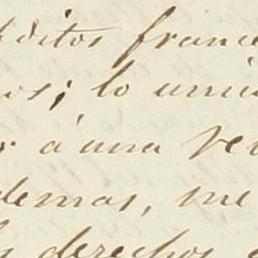 éditos franc
os; lo unic
r á una ve
demas, me
derechos